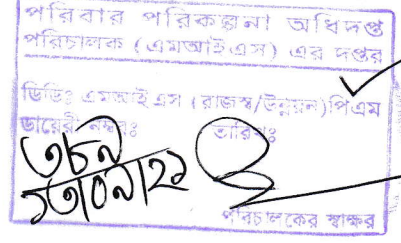 পরিবার পরিকল্পনা অধিদপ্ত
পরিচালক (এমআইএস) এর দপ্তর
ডিডিঃ এমআই এস (রাজস্ব/উন্নয়ন)পিএম
ডায়েরী নম্বরঃ তারিখঃ
পরিচালকের স্বাক্ষর